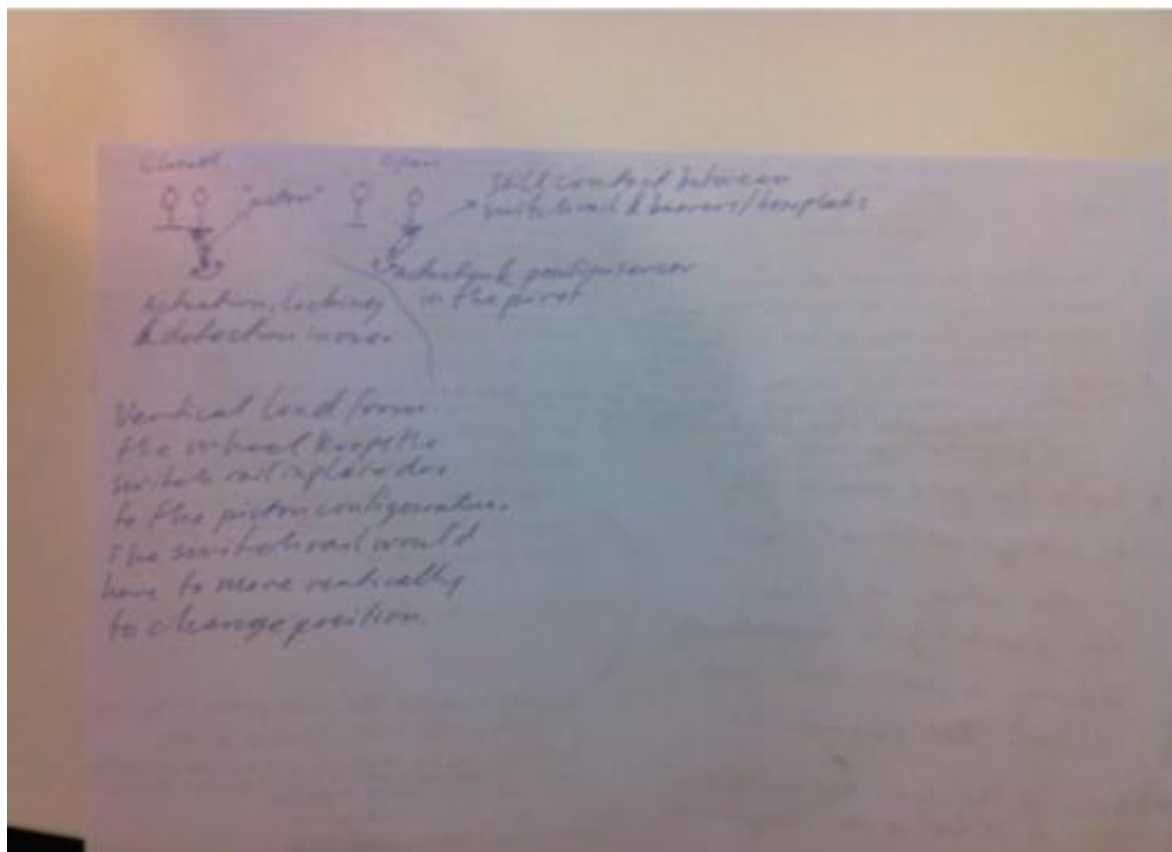 Closed
Open
"piston"
contact between
switchrail & bearers/
position sensor
in the pivot
Actuation, locking
& detection in one.
Vertical load from
the wheel keeps the
switch rail in place due
to the piston configuration.
The switch rail would
have to move vertically
to change position.